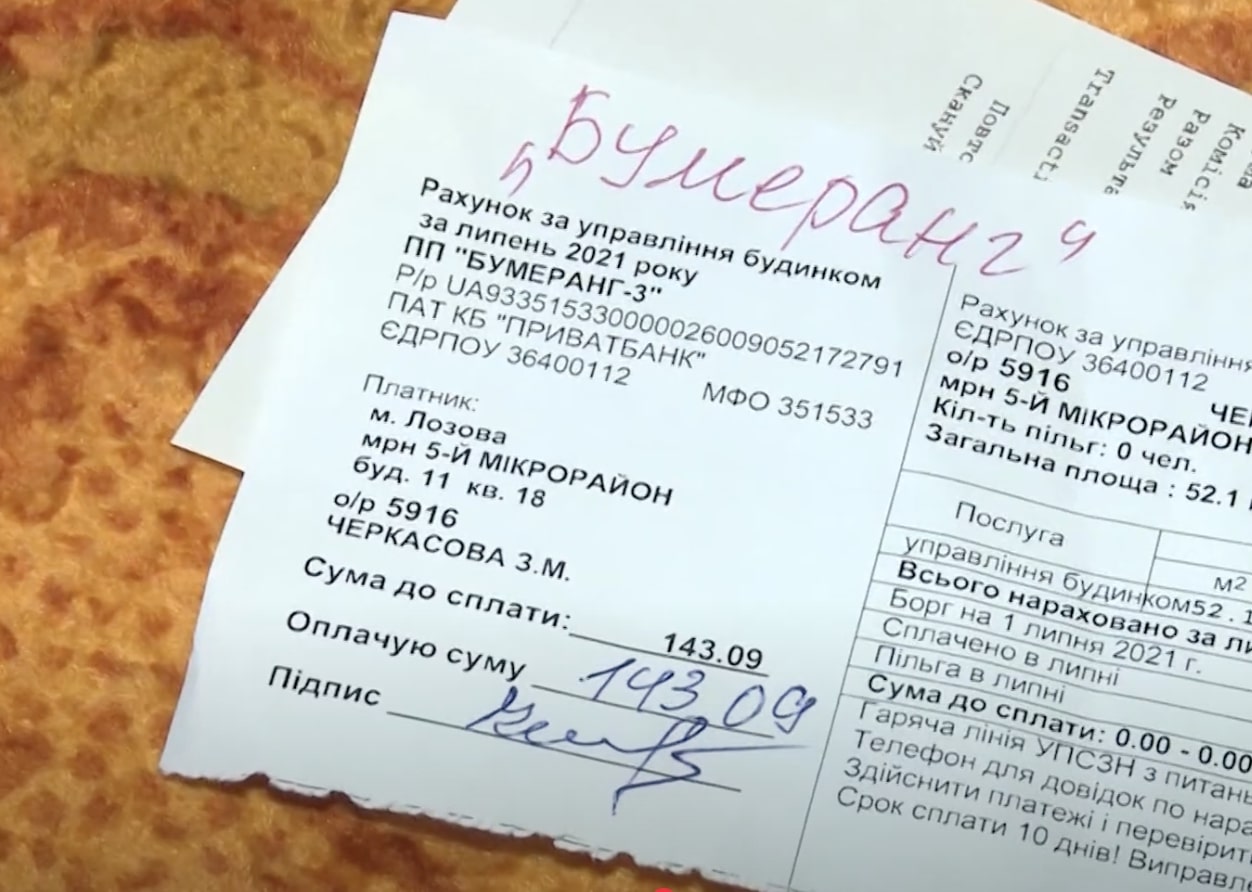 „Бумеранг“
Рахунок за управління будинком
за липень 2021 року
ПП "БУМЕРАНГ-3"
Р/р UA933515330000026009052172791
ПАТ КБ "ПРИВАТБАНК"
ЄДРПОУ 36400112 МФО 351533
Платник:
м. Лозова
мрн 5-Й МІКРОРАЙОН
буд. 11 кв. 18
о/р 5916
ЧЕРКАСОВА З.М.
Сума до сплати: 143.09
Оплачую суму 143 09
Підпис
Рахунок за управління
ЄДРПОУ 36400112
о/р 5916
мрн 5-Й МІКРОРАЙОН
Кіл-ть пільг: 0 чел.
Загальна площа : 52.1
Послуга
м2
управління будинком 52.1
Всього нараховано за
Борг на 1 липня 2021 г.
Сплачено в липні
Пільга в липні
Сума до сплати: 0.00 - 0.00
Гаряча лінія УПСЗН з питань
Телефон для довідок по
Здійснити платежі і
Срок сплати 10 днів!
Скануй
Transacti
Разом
Комісія